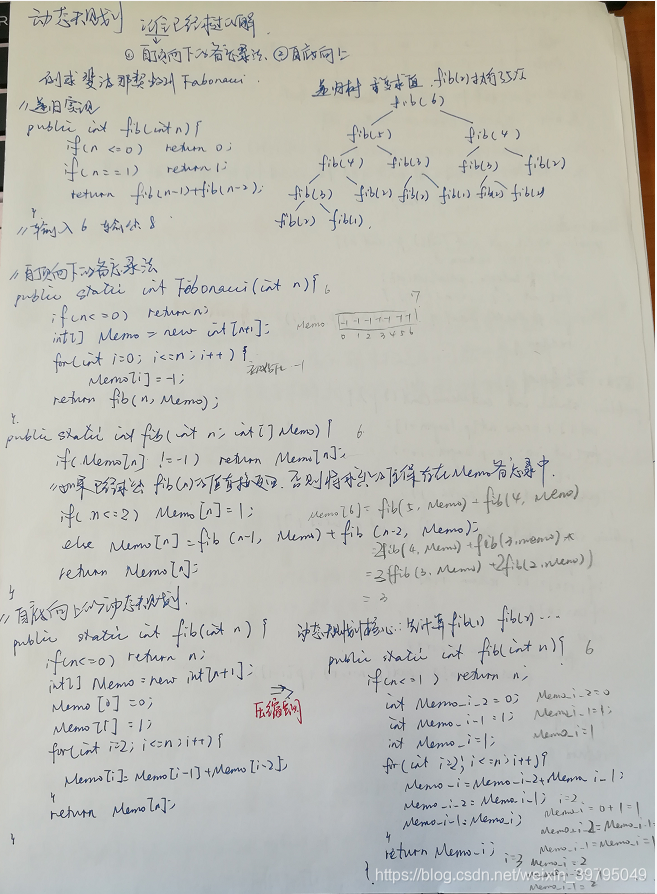 动态规划 记住已经求过的解
① 自顶向下的备忘录法 ② 自底向上
例求斐波那契数列 Fabonacci.
//递归实现
public int fib(int n){
if(n <=0) return 0;
if(n==1) return 1;
return fib(n-1)+fib(n-2);
}
//输入6 输出8
递归树 重复求值
fib(6)
fib(5) fib(4)
fib(4) fib(3) fib(3) fib(2)
fib(3) fib(2) fib(2) fib(1) fib(2) fib(1)
fib(2) fib(1).
//自顶向下的备忘录法
public static int Fabonacci(int n){ 6
if(n<=0) return n;
int[] Memo = new int[n+1];
for(int i=0; i<=n; i++){
Memo[i]=-1;
初始化 -1
return fib(n, Memo);
}
Memo -1 -1 -1 -1 -1 -1 -1
0 1 2 3 4 5 6
7
public static int fib(int n, int[] Memo){ 6
if(Memo[n] !=-1) return Memo[n];
//如果已经求出fib(n)的值直接返回,否则将求出的值保存在Memo备忘录中.
if(n<=2) Memo[n]=1;
else Memo[n]=fib(n-1, Memo)+fib(n-2, Memo);
return Memo[n];
}
Memo[6]= fib(5, Memo)+fib(4, Memo)
=2fib(4, Memo)+fib(3,memo)
//自底向上的动态规划.
public static int fib(int n){
if(n<=0) return n;
int[] Memo=new int[n+1];
Memo[0]=0;
Memo[1]=1;
for(int i=2; i<=n; i++){
Memo[i]=Memo[i-1]+Memo[i-2];
}
return Memo[n];
}
压缩空间
动态规划核心:先计算fib(1) fib(2)...
public static int fib(int n){ 6
if(n<=1) return n;
int Memo_i_2=0; Memo_i_2=0
int Memo_i_1=1; Memo_i_1=1;
int Memo_i=1; Memo_i=1
for(int i=2; i<=n; i++){
Memo_i=Memo_i_2+Memo_i_1;
Memo_i_2=Memo_i_1; i=2
Memo_i_1=Memo_i; Memo_i=0+1=1
} Memo_i_2=Memo_i_1=
Memo_i_1=Memo_i=1
return Memo_i; i=3 Memo_i=2
}
https://blog.csdn.net/weixin_39795049